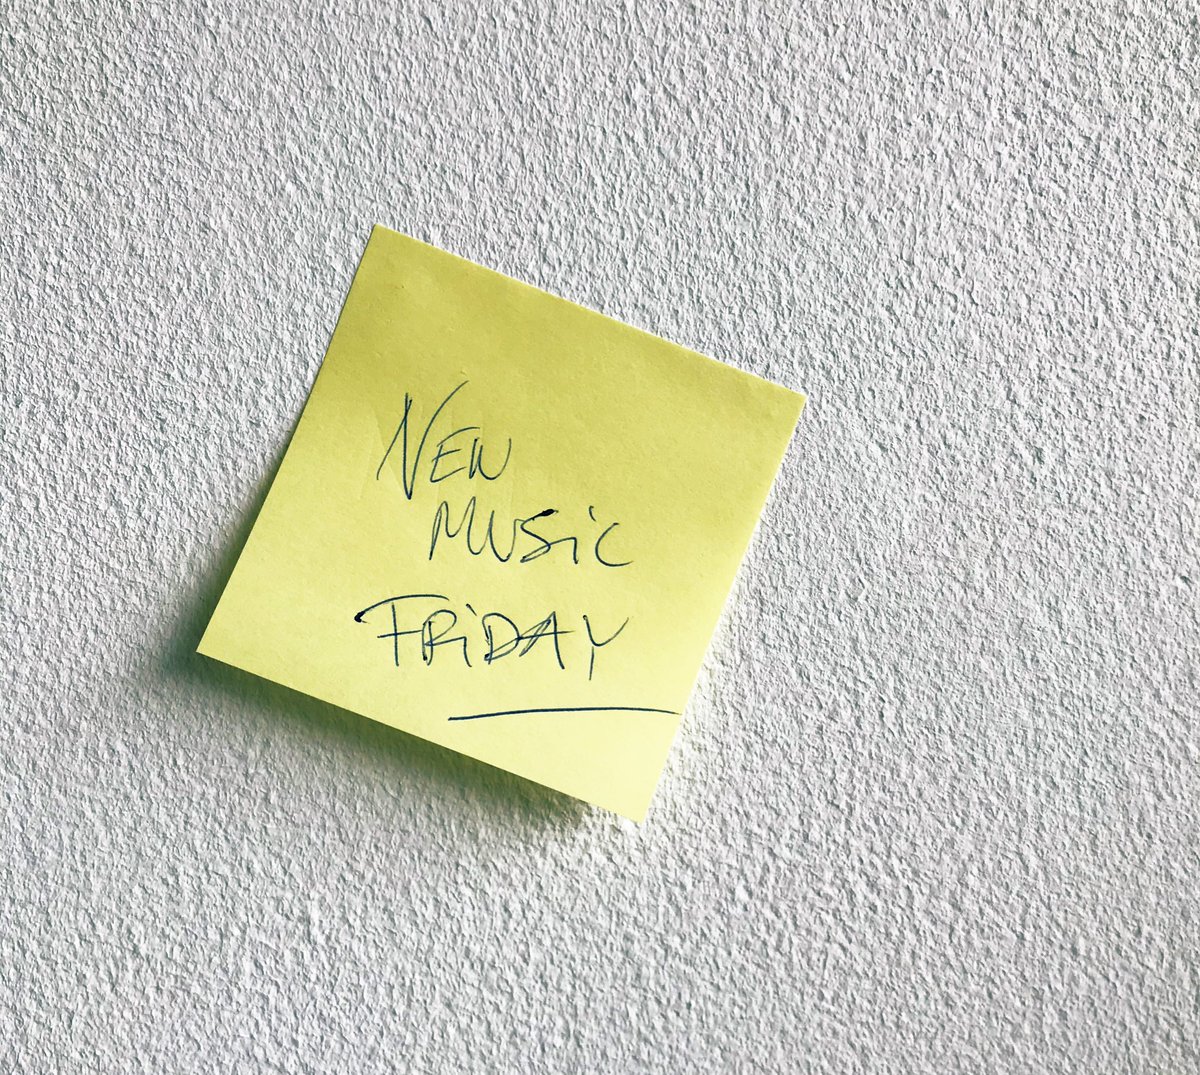 NEW
MUSiC
FRiDAY